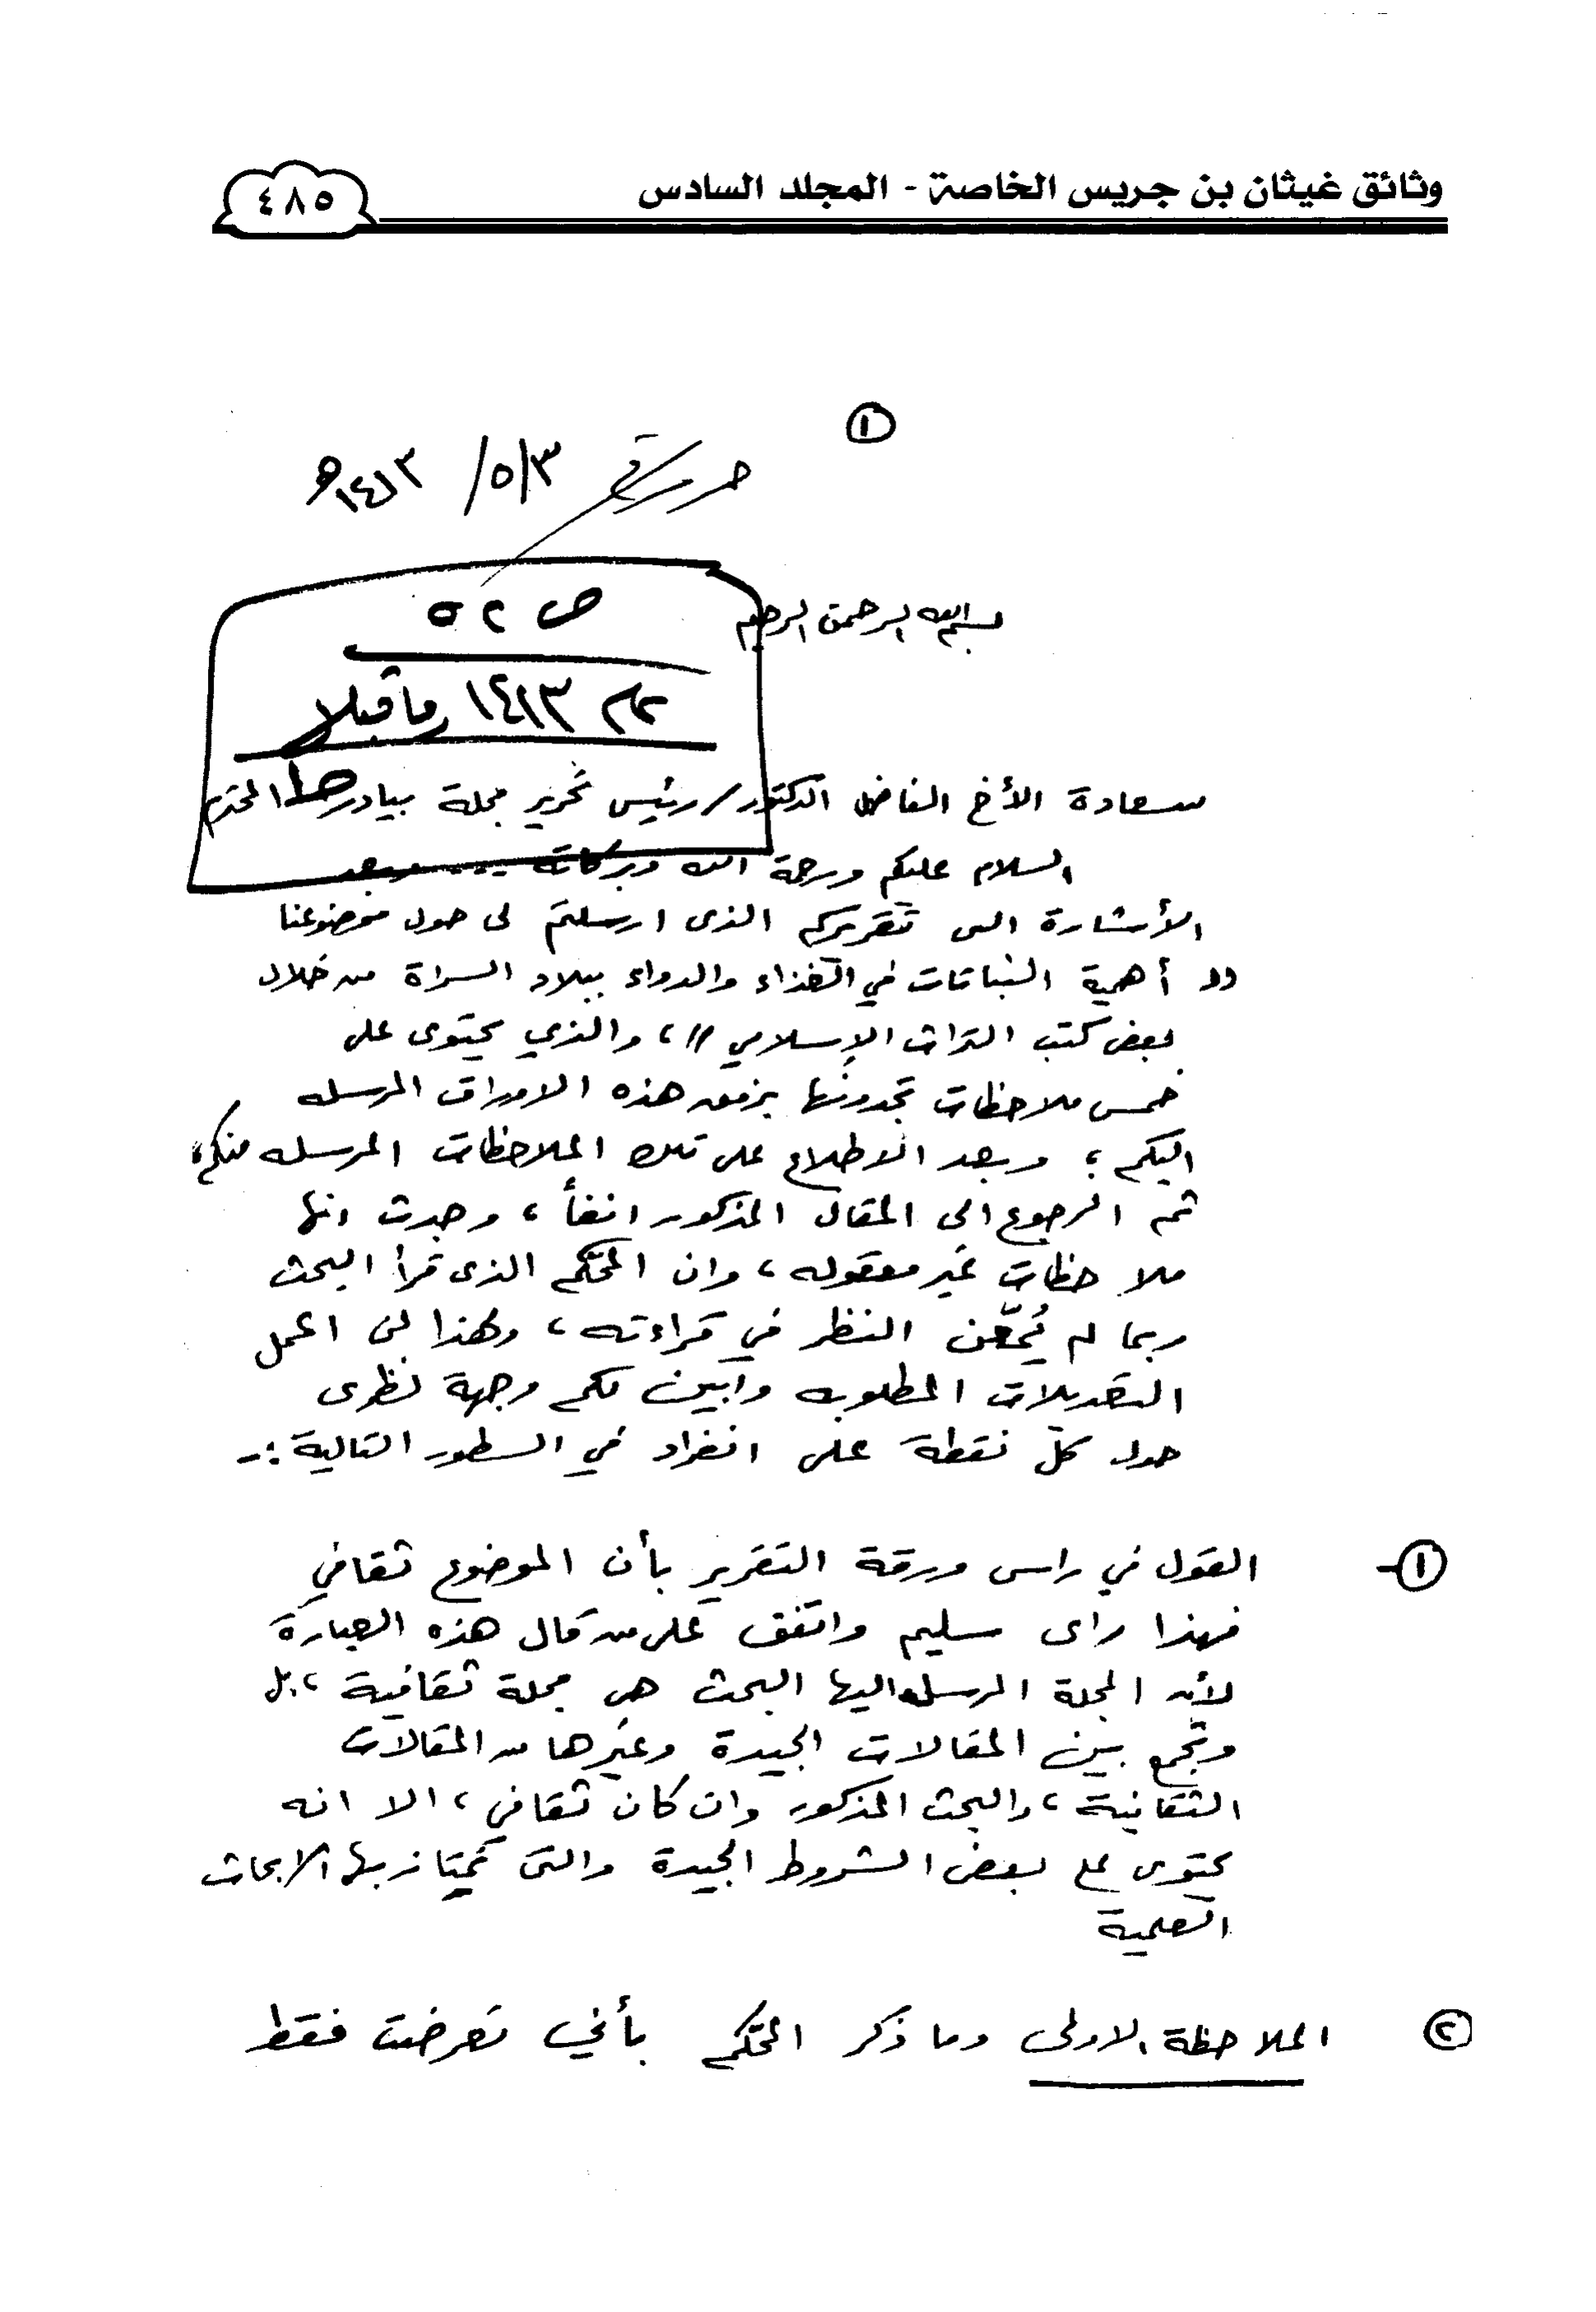 وثائق غيثان بن جريس الخاصة - المجلد السادس
٤٨٥
١
حررت في ٣/٥/١٤١٣هـ
بسم الله الرحمن الرحيم
ص ٥٢
١٤١٣ وما قبلا
سعادة الأخ الفاضل الدكتور/ رئيس تحرير مجلة بيادر المحترم
السلام عليكم ورحمة الله وبركاته ... وبعد
الأشارة الى تقريركم الذى ارسلتم لى حول موضوعنا
(( أهمية النباتات في الغذاء والدواء ببلاد السراة من خلال
بعض كتب التراث الإسلامي ))، والذي يحتوى على
خمس ملاحظات تجدونها برفق هذه الاوراق المرسله
اليكم؛ وبعد الاطلاع على تلك الملاحظات المرسله منكم،
ثم الرجوع الى المقال المذكور انفاً، وجدت انها
ملاحظات غير معقوله، وان المحكّم الذى قرأ البحث
ربما لم يُمعّن النظر في قراءته، ولهذا لن اعمل
التعديلات المطلوبه وابين لكم وجهة نظرى
حول كلّ نقطة على انفراد في السطور التالية :-
١- القول في راس ورقة التقرير بأن الموضوع ثقافي
فهذا راى سليم واتفق على من قال هذه العبارة
لأن المجلة المرسله اليها البحث هى مجلة ثقافية، بل
وتجمع بين المقالات الجيدة وغيرها من المقالات
الثقافية، والبحث المذكور وان كان ثقافي، الا انه
يحتوى على بعض الشروط الجيدة والتى تمتاز بها الابحاث
العلمية
٢ الملاحظة الاولى وما ذكر المحكّم بأني تعرضت فقط